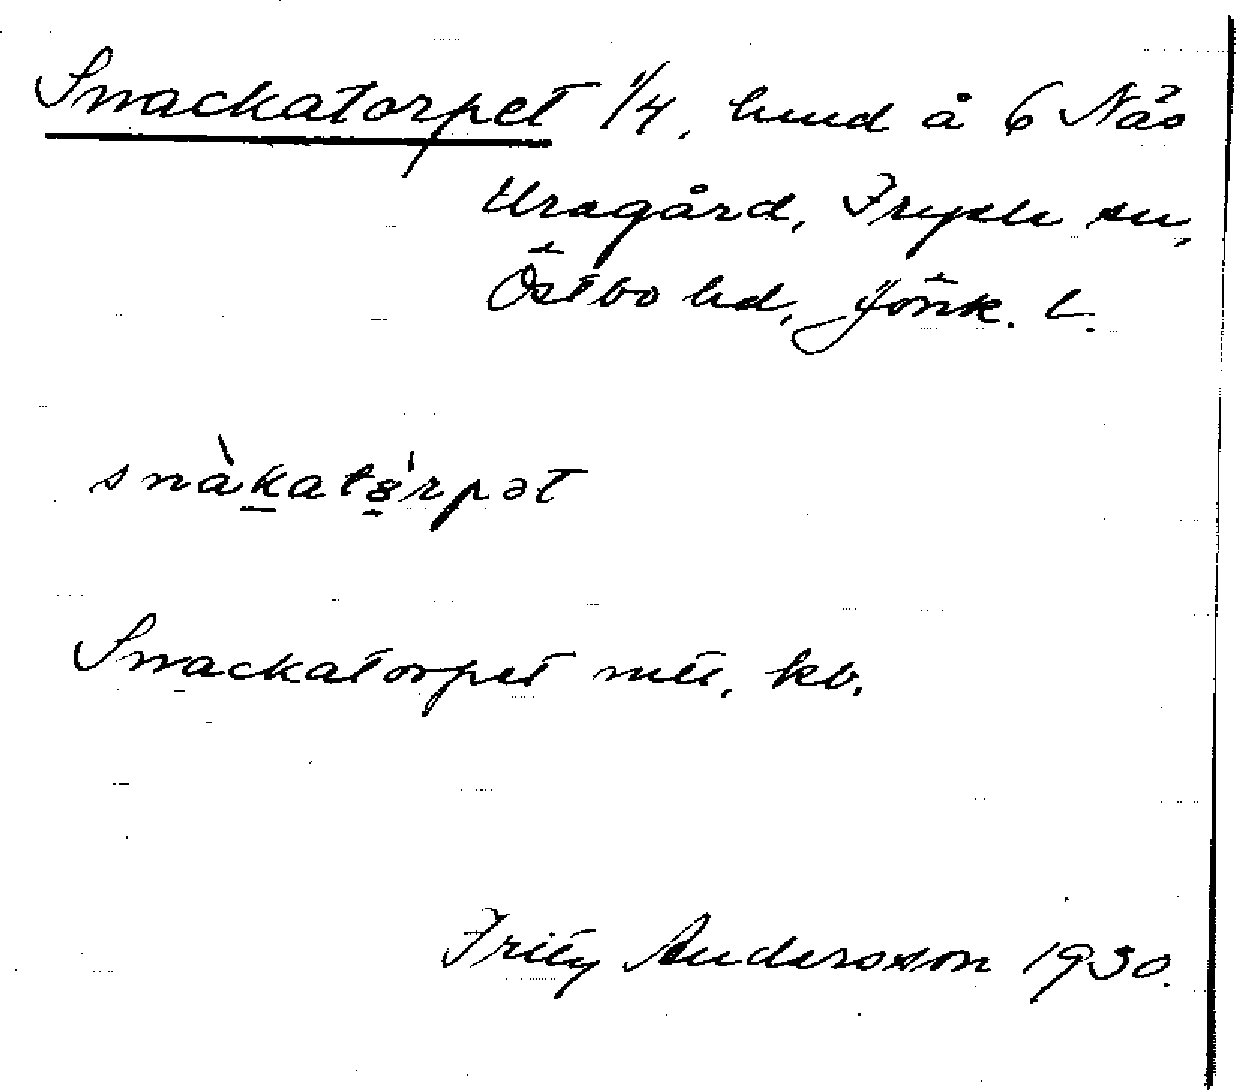 Snackatorpet 1/4, hmd å 6 Näs
Uragård, Fryele sn,
Östbo hd, Jönk. l.
snàkatȯ́rpət
Snackatorpet mtl, kb.
Fritz Andersson 1930.